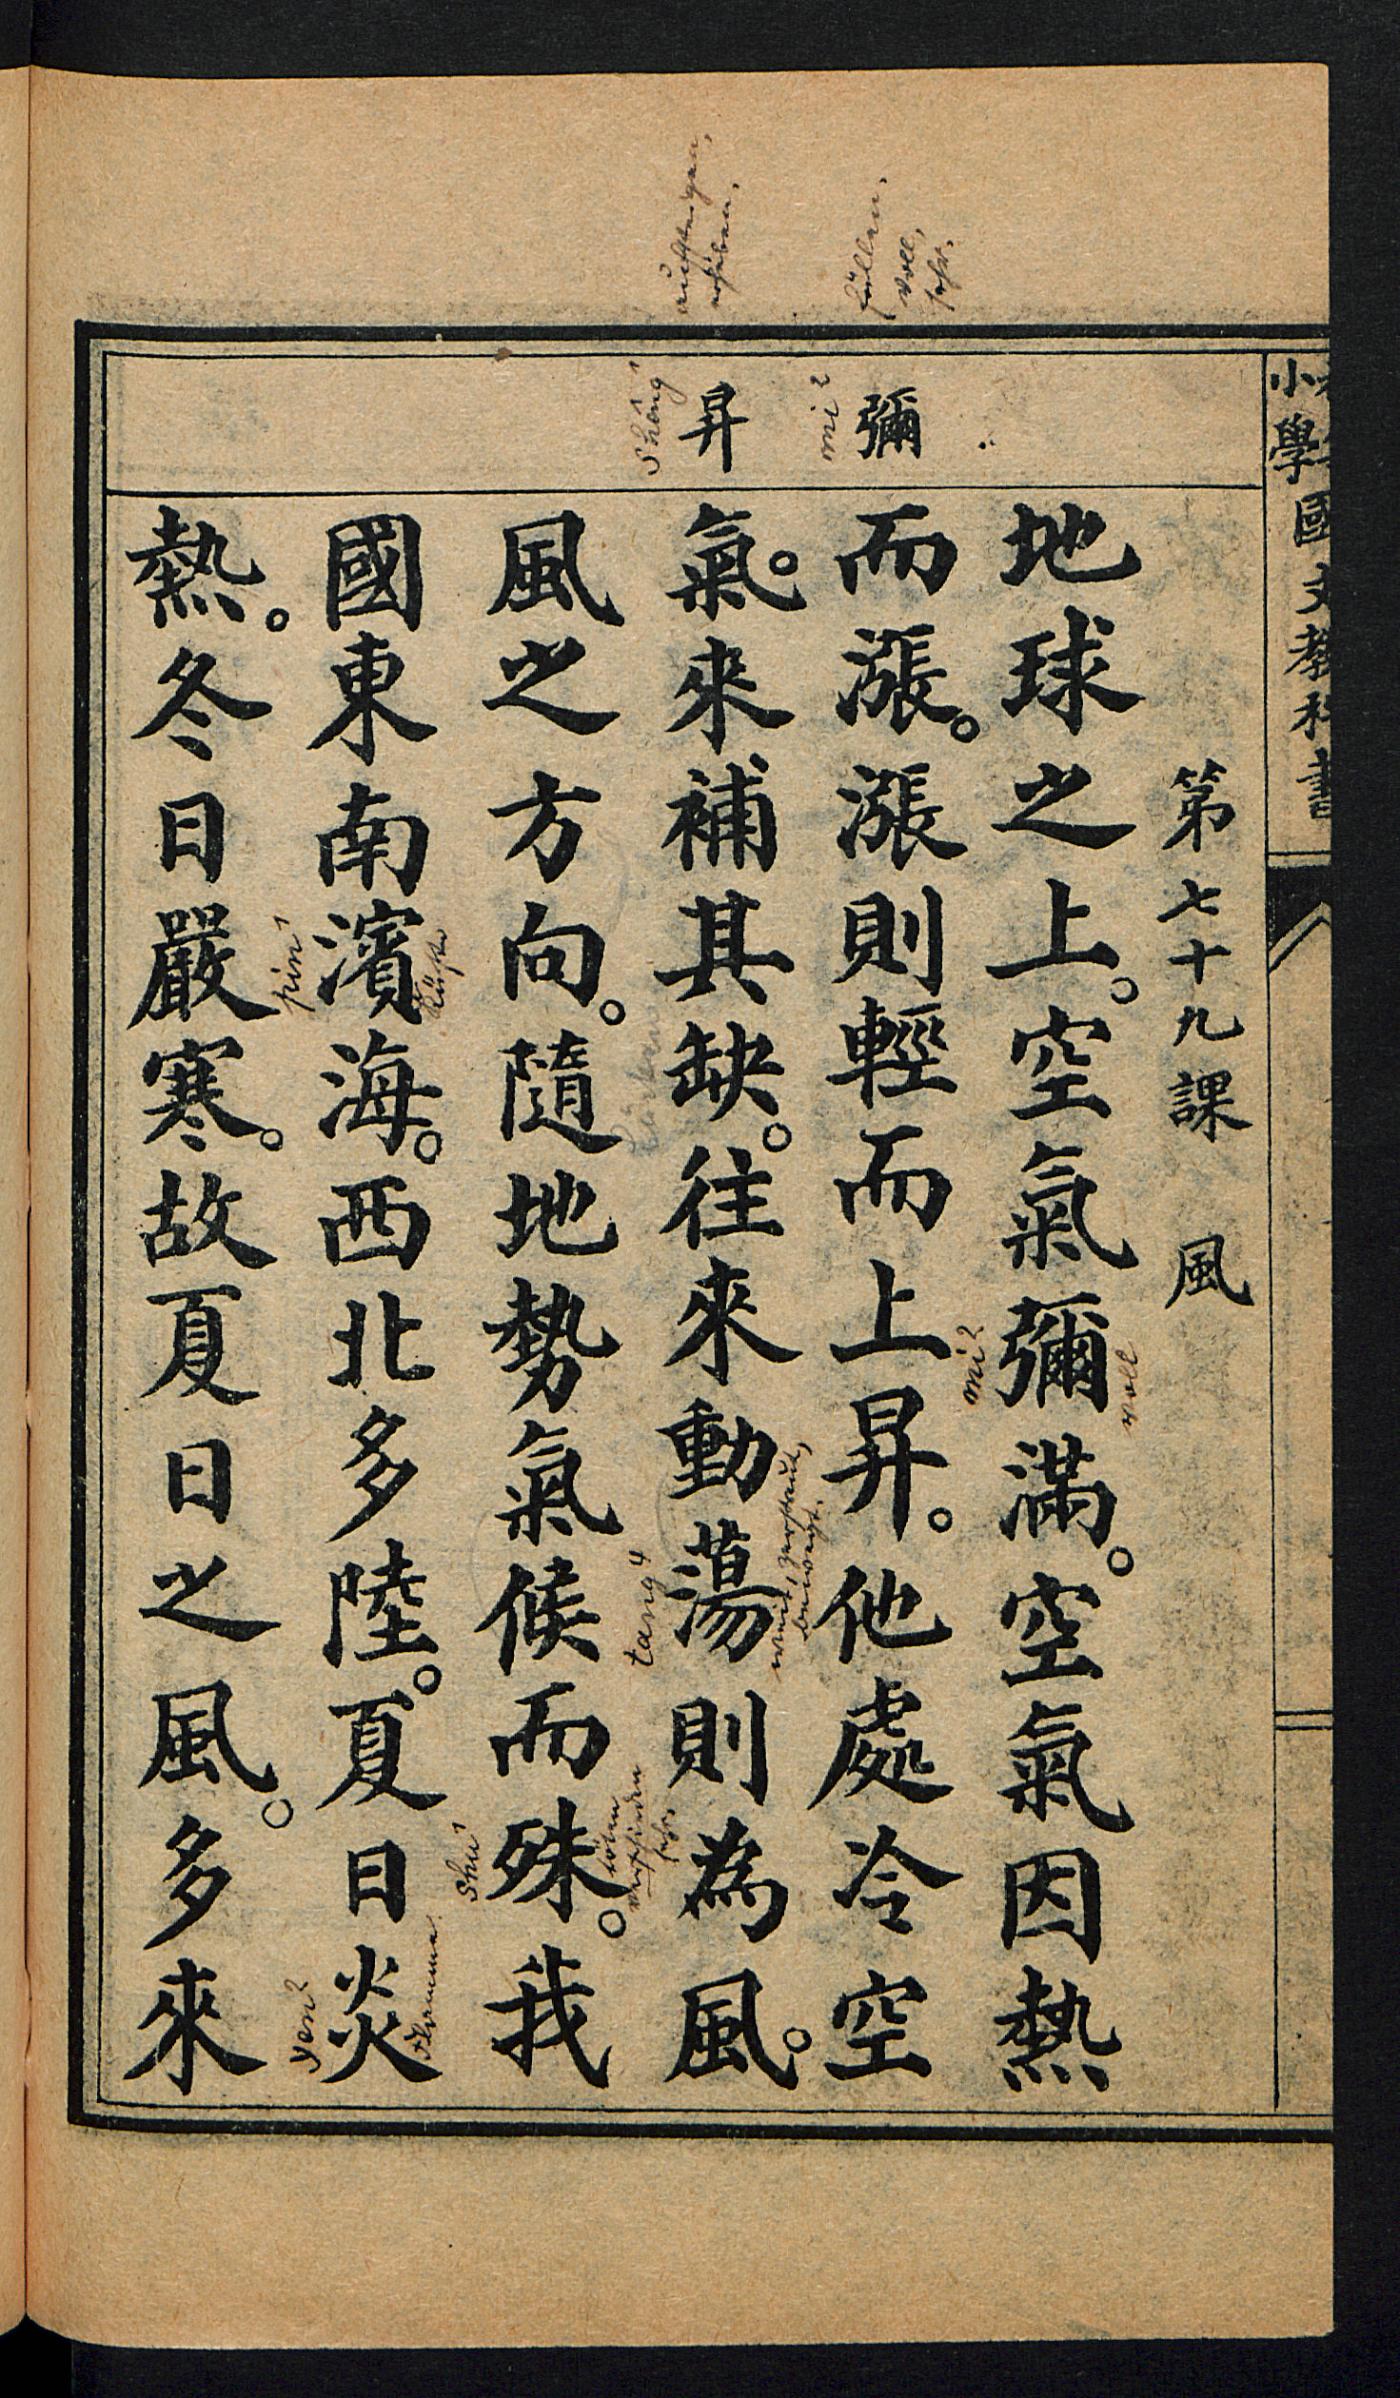 小學國文教科書
第七十九課　風
彌
昇
地球之上。空氣彌滿。空氣因熱
而漲。漲則輕而上昇。他處冷空
氣。來補其缺。往來動蕩則為風。
風之方向。隨地勢氣候而殊。我
國東南濱海。西北多陸。夏日炎
熱。冬日嚴寒。故夏日之風。多來
füllen,
voll,
sehr.
aufsteigen,
mi²
shêng¹
mi²
voll
tang⁴
shu¹
pin¹
Küste
yen²
Flamme